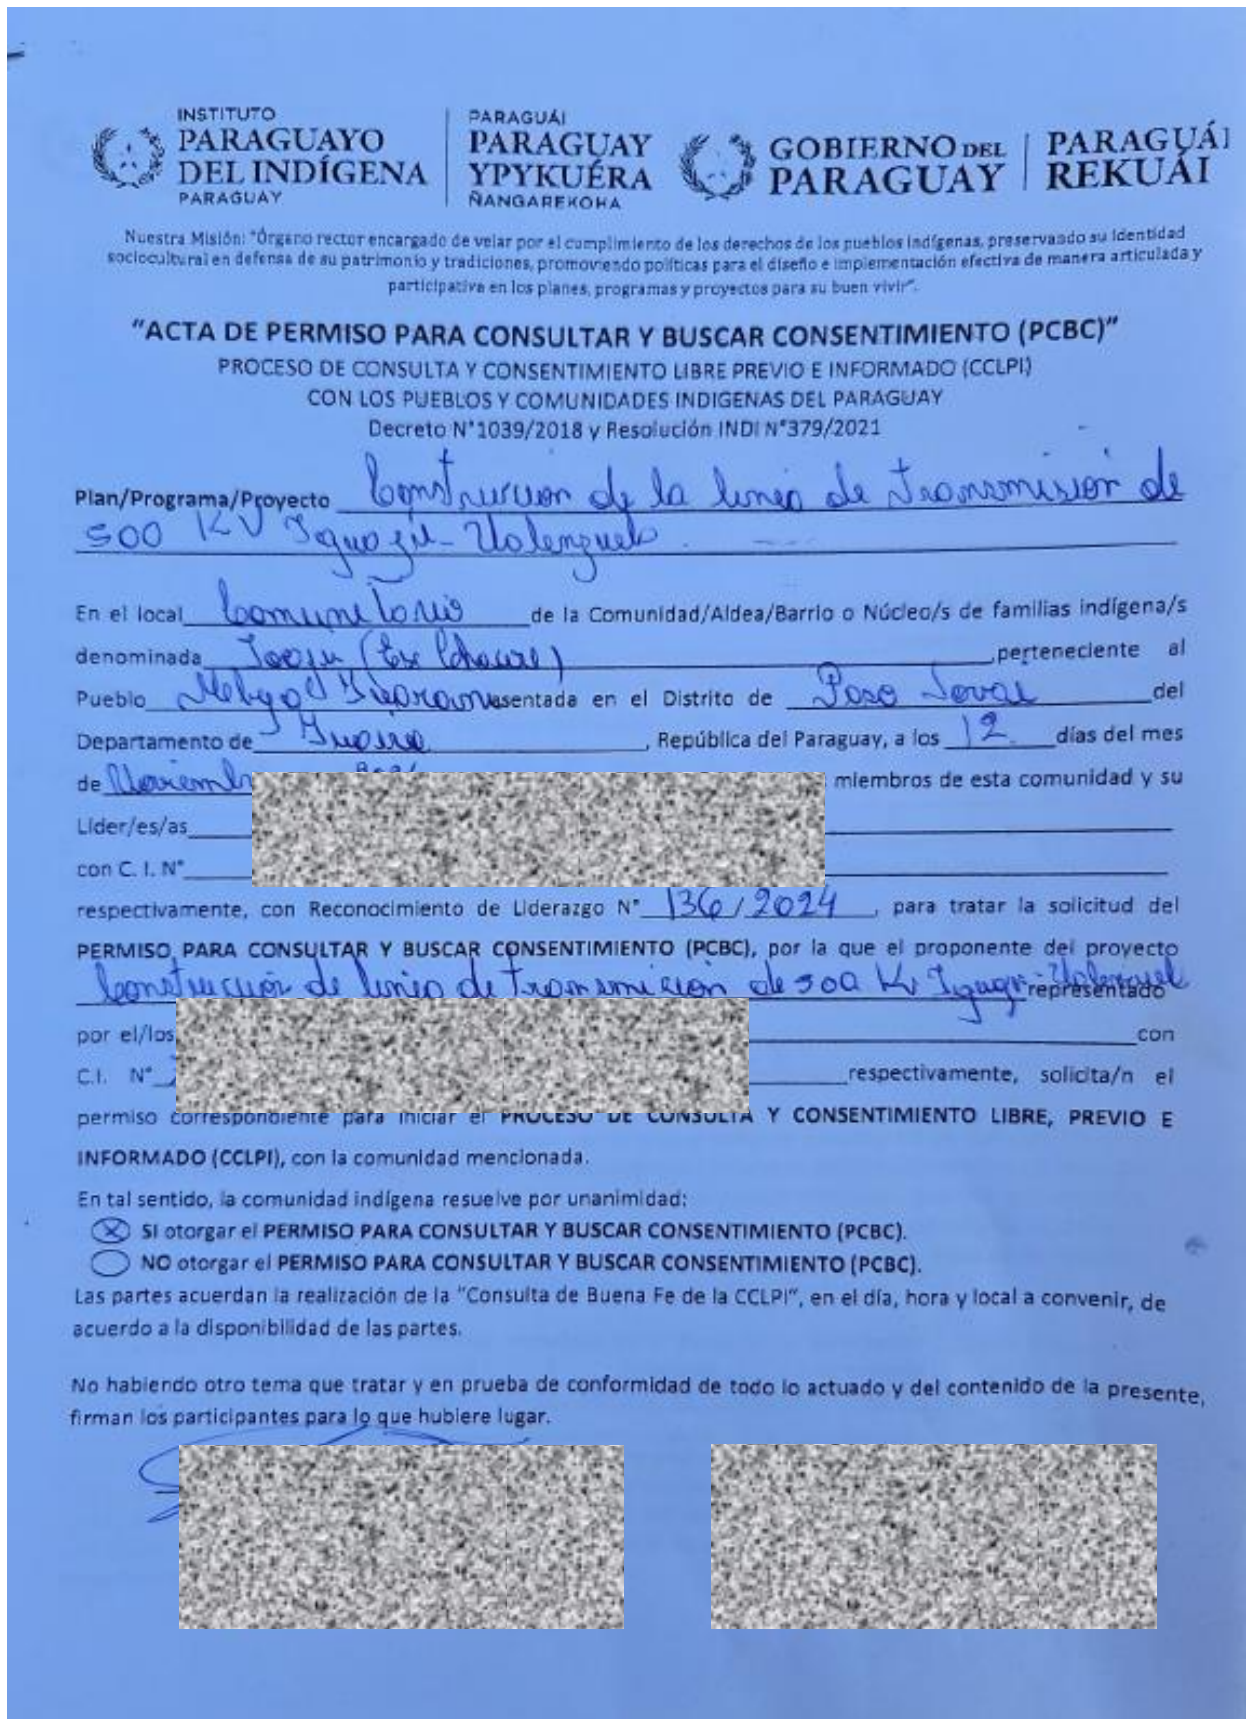 INSTITUTO
PARAGUAYO
DEL INDÍGENA
PARAGUAY
PARAGUÁI
PARAGUAY
YPYKUÉRA
ÑANGAREKOHA
GOBIERNO DEL
PARAGUAY
PARAGUÁI
REKUÁI
Nuestra Misión: "Órgano rector encargado de velar por el cumplimiento de los derechos de los pueblos indígenas, preservando su identidad
sociocultural en defensa de su patrimonio y tradiciones, promoviendo políticas para el diseño e implementación efectiva de manera articulada y
participativa en los planes, programas y proyectos para su buen vivir".
"ACTA DE PERMISO PARA CONSULTAR Y BUSCAR CONSENTIMIENTO (PCBC)"
PROCESO DE CONSULTA Y CONSENTIMIENTO LIBRE PREVIO E INFORMADO (CCLPI)
CON LOS PUEBLOS Y COMUNIDADES INDIGENAS DEL PARAGUAY
Decreto N°1039/2018 y Resolución INDI N°379/2021
Plan/Programa/Proyecto Construccion de la linea de Transmisión de
500 KV Iguazú - Valenzuela
En el local Comunitario de la Comunidad/Aldea/Barrio o Núcleo/s de familias indígena/s
denominada (Ex perteneciente al
Pueblo Mbya Guarani asentada en el Distrito de Paso Yovai del
Departamento de Guaira, República del Paraguay, a los 12 días del mes
de miembros de esta comunidad y su
Lider/es/as
con C. I. N°
respectivamente, con Reconocimiento de Liderazgo N° 136/2024, para tratar la solicitud del
PERMISO PARA CONSULTAR Y BUSCAR CONSENTIMIENTO (PCBC), por la que el proponente del proyecto
Construcción de linea de transmicion de 500 Kv representado
por el/los con
C.I. N° respectivamente, solicita/n el
permiso correspondiente para iniciar el PROCESO DE CONSULTA Y CONSENTIMIENTO LIBRE, PREVIO E
INFORMADO (CCLPI), con la comunidad mencionada.
En tal sentido, la comunidad indígena resuelve por unanimidad:
SI otorgar el PERMISO PARA CONSULTAR Y BUSCAR CONSENTIMIENTO (PCBC).
NO otorgar el PERMISO PARA CONSULTAR Y BUSCAR CONSENTIMIENTO (PCBC).
Las partes acuerdan la realización de la "Consulta de Buena Fe de la CCLPI", en el día, hora y local a convenir, de
acuerdo a la disponibilidad de las partes.
No habiendo otro tema que tratar y en prueba de conformidad de todo lo actuado y del contenido de la presente,
firman los participantes para lo que hubiere lugar.